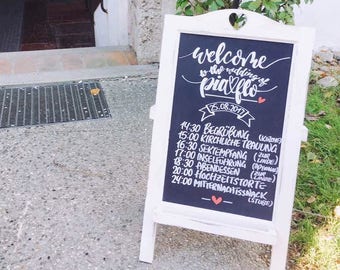 welcome
to the wedding of
pia&flo
25.08.2017
14:30 BEGRÜSSUNG (KIRCHE)
15:00 KIRCHLICHE TRAUUNG
16:30 SEKTEMPFANG (ZUR LINDE)
17:00 INSELFÜHRUNG
18:30 ABENDESSEN (ZUR LINDE)
20:00 HOCHZEITSTORTE
24:00 MITTERNACHTSSNACK
(STUBE)